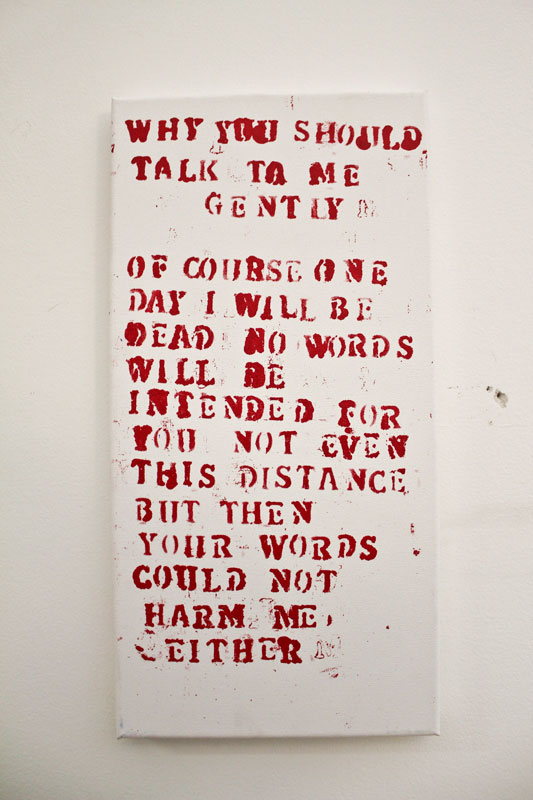 WHY YOU SHOULD
TALK TO ME
GENTLY
OF COURSE ONE
DAY I WILL BE
DEAD NO WORDS
WILL BE
INTENDED FOR
YOU NOT EVEN
THIS DISTANCE
BUT THEN
YOUR WORDS
COULD NOT
HARM ME,
EITHER